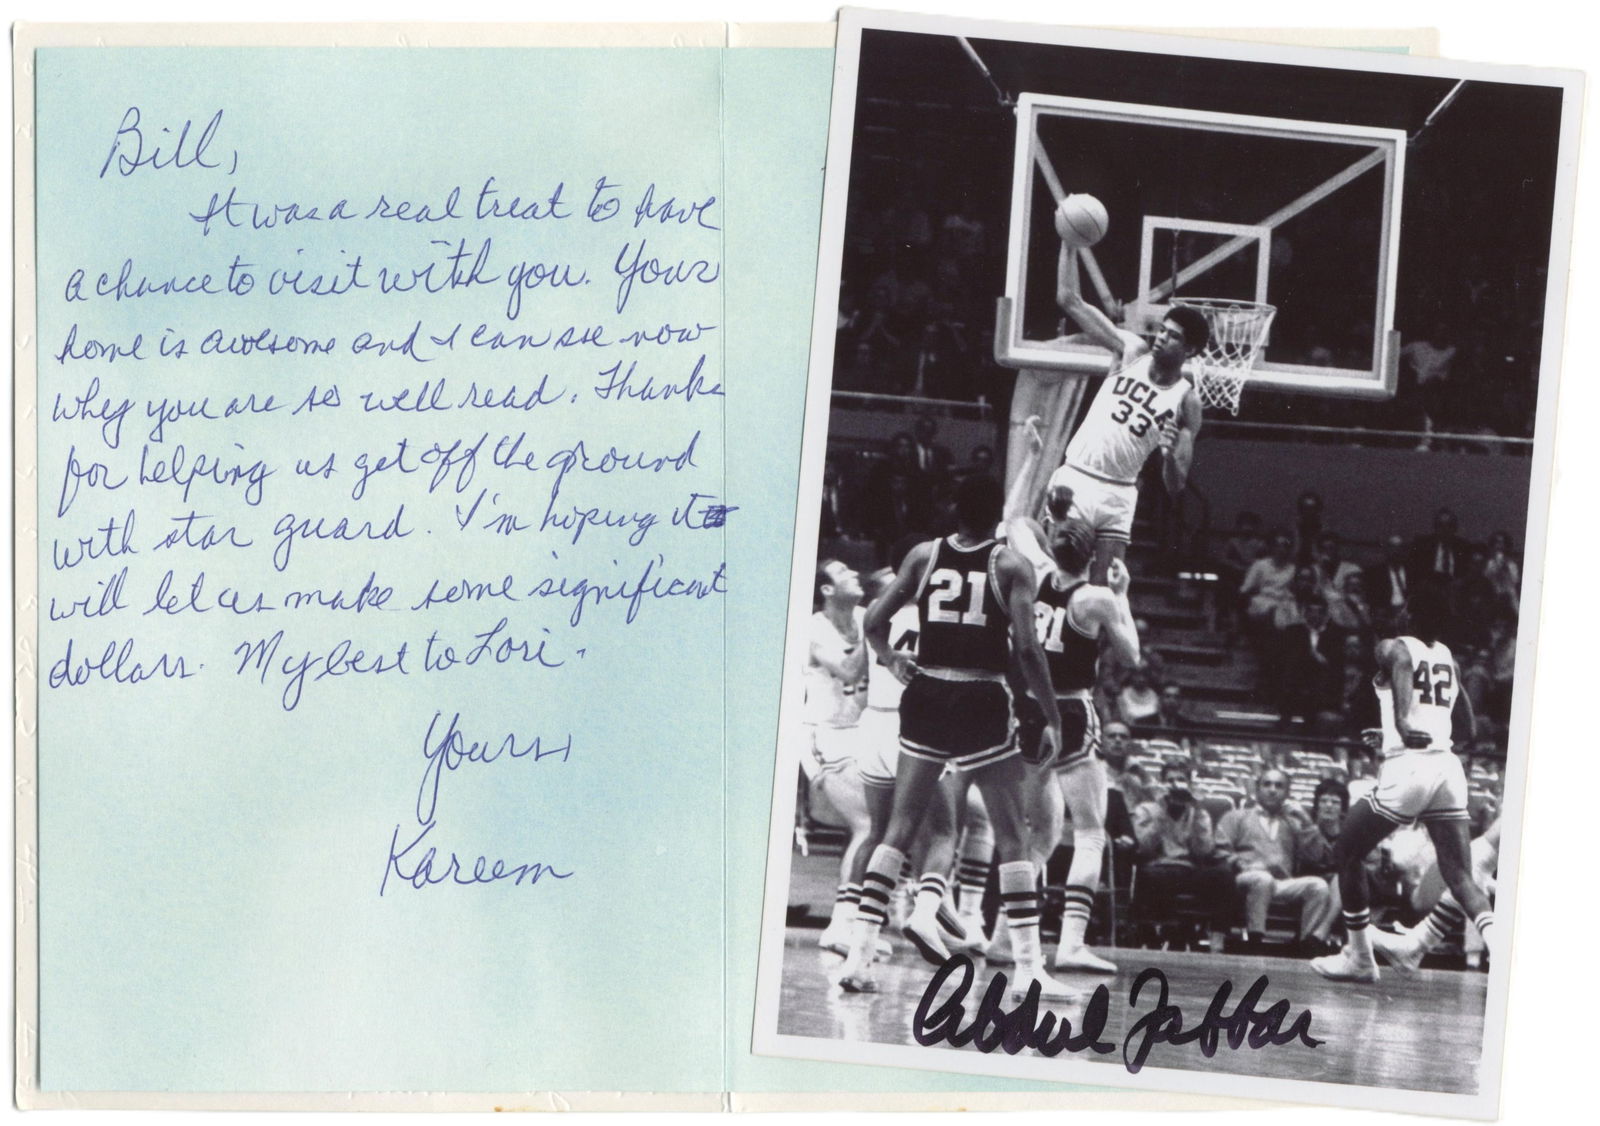 Bill,
It was a real treat to have
a chance to visit with you. Your
home is awesome and I can see now
why you are so well read. Thanks
for helping us get off the ground
with star guard. I'm hoping it
will let us make some significant
dollars. My best to Lori.
Yours,
Kareem
UCLA
33
21
31
4
42
Abdul Jabbar